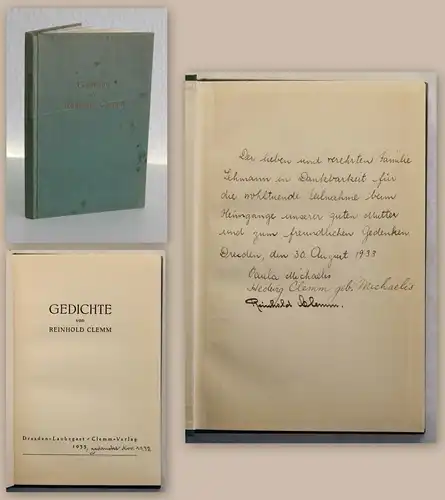 Gedichte
von
Reinhold Clemm
Der lieben und verehrten Familie
Lehmann in Dankbarkeit für
die wohltuende Teilnahme beim
Heimgange unserer guten Mutter
und zum freundlichen Gedenken
Dresden, den 30. August 1933
Paula Michaelis
Hedwig Clemm geb. Michaelis
Reinhold Clemm.
GEDICHTE
von
REINHOLD CLEMM
Dresden-Laubegast · Clemm-Verlag
1933,